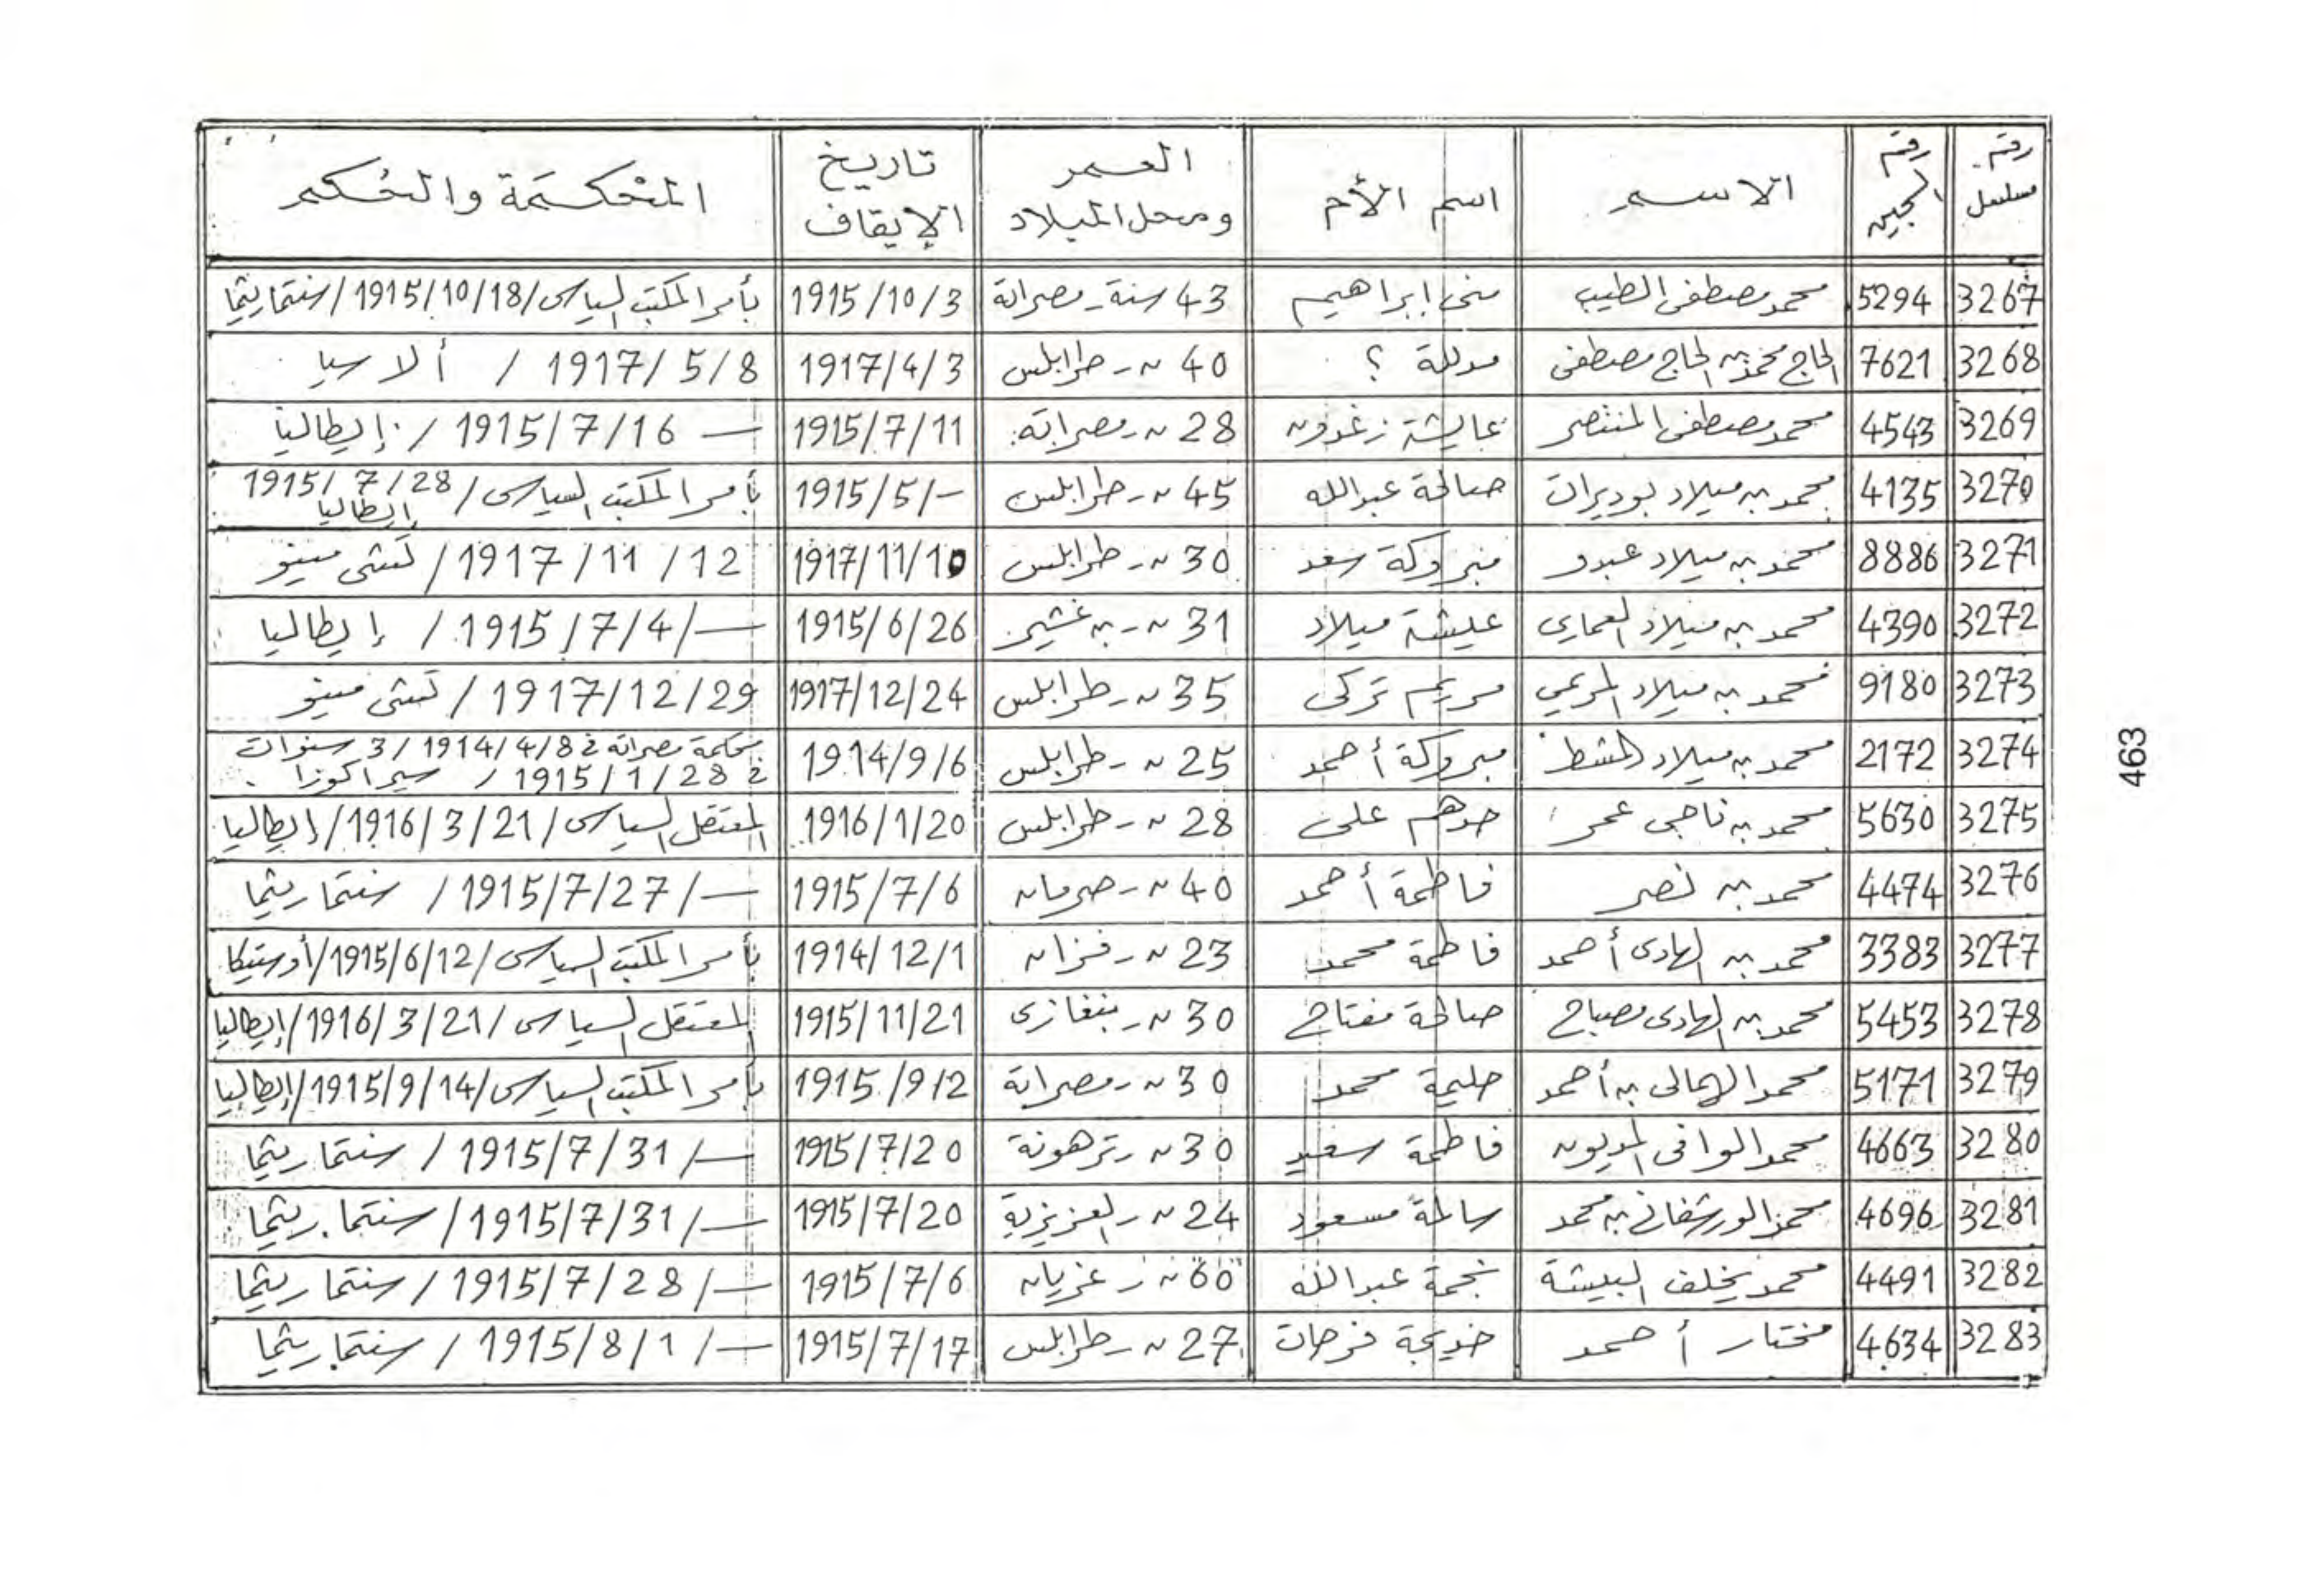 رقم مسلسل رقم السجين الاسم اسم الأم العمر ومحل الميلاد تاريخ الإيقاف المحكمة والحكم
3267 5294 محمد مصطفى الطيب منى ابراهيم 43 سنة - مصراتة 1915/10/3 بأمر المكتب السياسى/1915/10/18/سنتماريثما
3268 7621 الحاج محمد بن الحاج مصطفى مدللة ؟ 40 ~ - طرابلس 1917/4/3 1917/5/8 / ألاسيا
3269 4543 محمد مصطفى المنتصر عايشة زغدون 28 ~ - مصراتة 1915/7/11 — 1915/7/16 / إيطاليا
3270 4135 محمد بن ميلاد بوديرات صالحة عبدالله 45 ~ - طرابلس 1915/5/- بأمر المكتب السياسى/ 1915/7/28 إيطاليا
3271 8886 محمد بن ميلاد عبدو مبروكة سعد 30 ~ - طرابلس 1917/11/10 1917/11/12 / تستى مينو
3272 4390 محمد بن ميلاد العمارى عيشة ميلاد 31 ~ - بن غشير 1915/6/26 —/1915/7/4 / إيطاليا
3273 9180 محمد بن ميلاد المريمي مريم تركى 35 ~ - طرابلس 1917/12/24 1917/12/29 / تستى مينو
3274 2172 محمد بن ميلاد المشط مبروكة أحمد 25 ~ - طرابلس 1914/9/6 محكمة مصراتة فى 1914/4/8 /3 سنوات
فى 1915/1/28 / سيراكوزا
3275 5630 محمد بن ناجى عمر حدهم على 28 ~ - طرابلس 1916/1/20 المعتقل السياسى/ 1916/3/21/إيطاليا
3276 4474 محمد بن نصر فاطمة أحمد 40 ~ - صرمان 1915/7/6 —/1915/7/27 / سنتماريثما
3277 3383 محمد بن الهادى أحمد فاطمة محمد 23 ~ - فزان 1914/12/1 بأمر المكتب السياسى/1915/6/12/أوستيكا
3278 5453 محمد بن الهادى مصباح صالحة مفتاح 30 ~ - بنغازى 1915/11/21 المعتقل السياسى /1916/3/21/إيطاليا
3279 5171 محمد الهمالى بن أحمد حليمة محمد 30 ~ - مصراتة 1915/9/2 بأمر المكتب السياسى/1915/9/14/إيطاليا
3280 4663 محمد الوافى المديون فاطمة سعيد 30 ~ - ترهونة 1915/7/20 —/1915/7/31 / سنتماريثما
3281 4696 محمد الورشفانى بن محمد سالمة مسعود 24 ~ - العزيزية 1915/7/20 —/1915/7/31/ سنتماريثما
3282 4491 محمد يخلف البيشة نجمة عبدالله 60 ~ - غريان 1915/7/6 —/1915/7/28/ سنتماريثما
3283 4634 مختار أحمد خديجة فرحات 27 ~ - طرابلس 1915/7/17 —/1915/8/1 / سنتماريثما
463